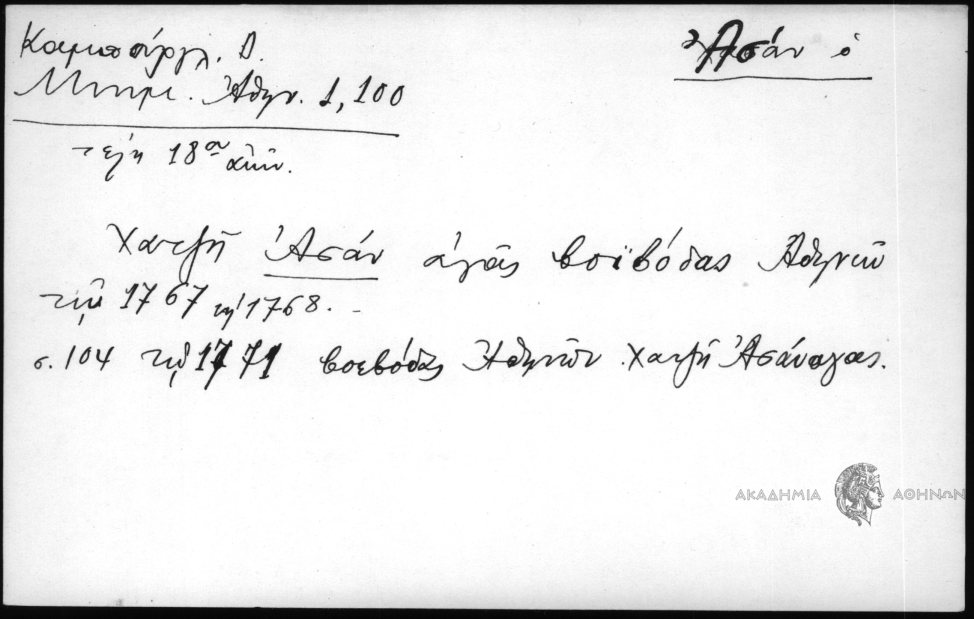 Καμπούργλ. Δ.
Μνημ. Ἀθην. 1, 100
Ἀσάν ὁ
τέλη 18ου αἰῶν.
Χατζῆ Ἀσάν ἀγᾶς βοϊβόδας Ἀθηνῶν
τῷ 1767 καὶ 1768.
σ. 104 τῷ 1771 βοεβόδας Ἀθηνῶν Χατζῆ Ἀσάναγας.
ΑΚΑΔΗΜΙΑ ΑΘΗΝΩΝ